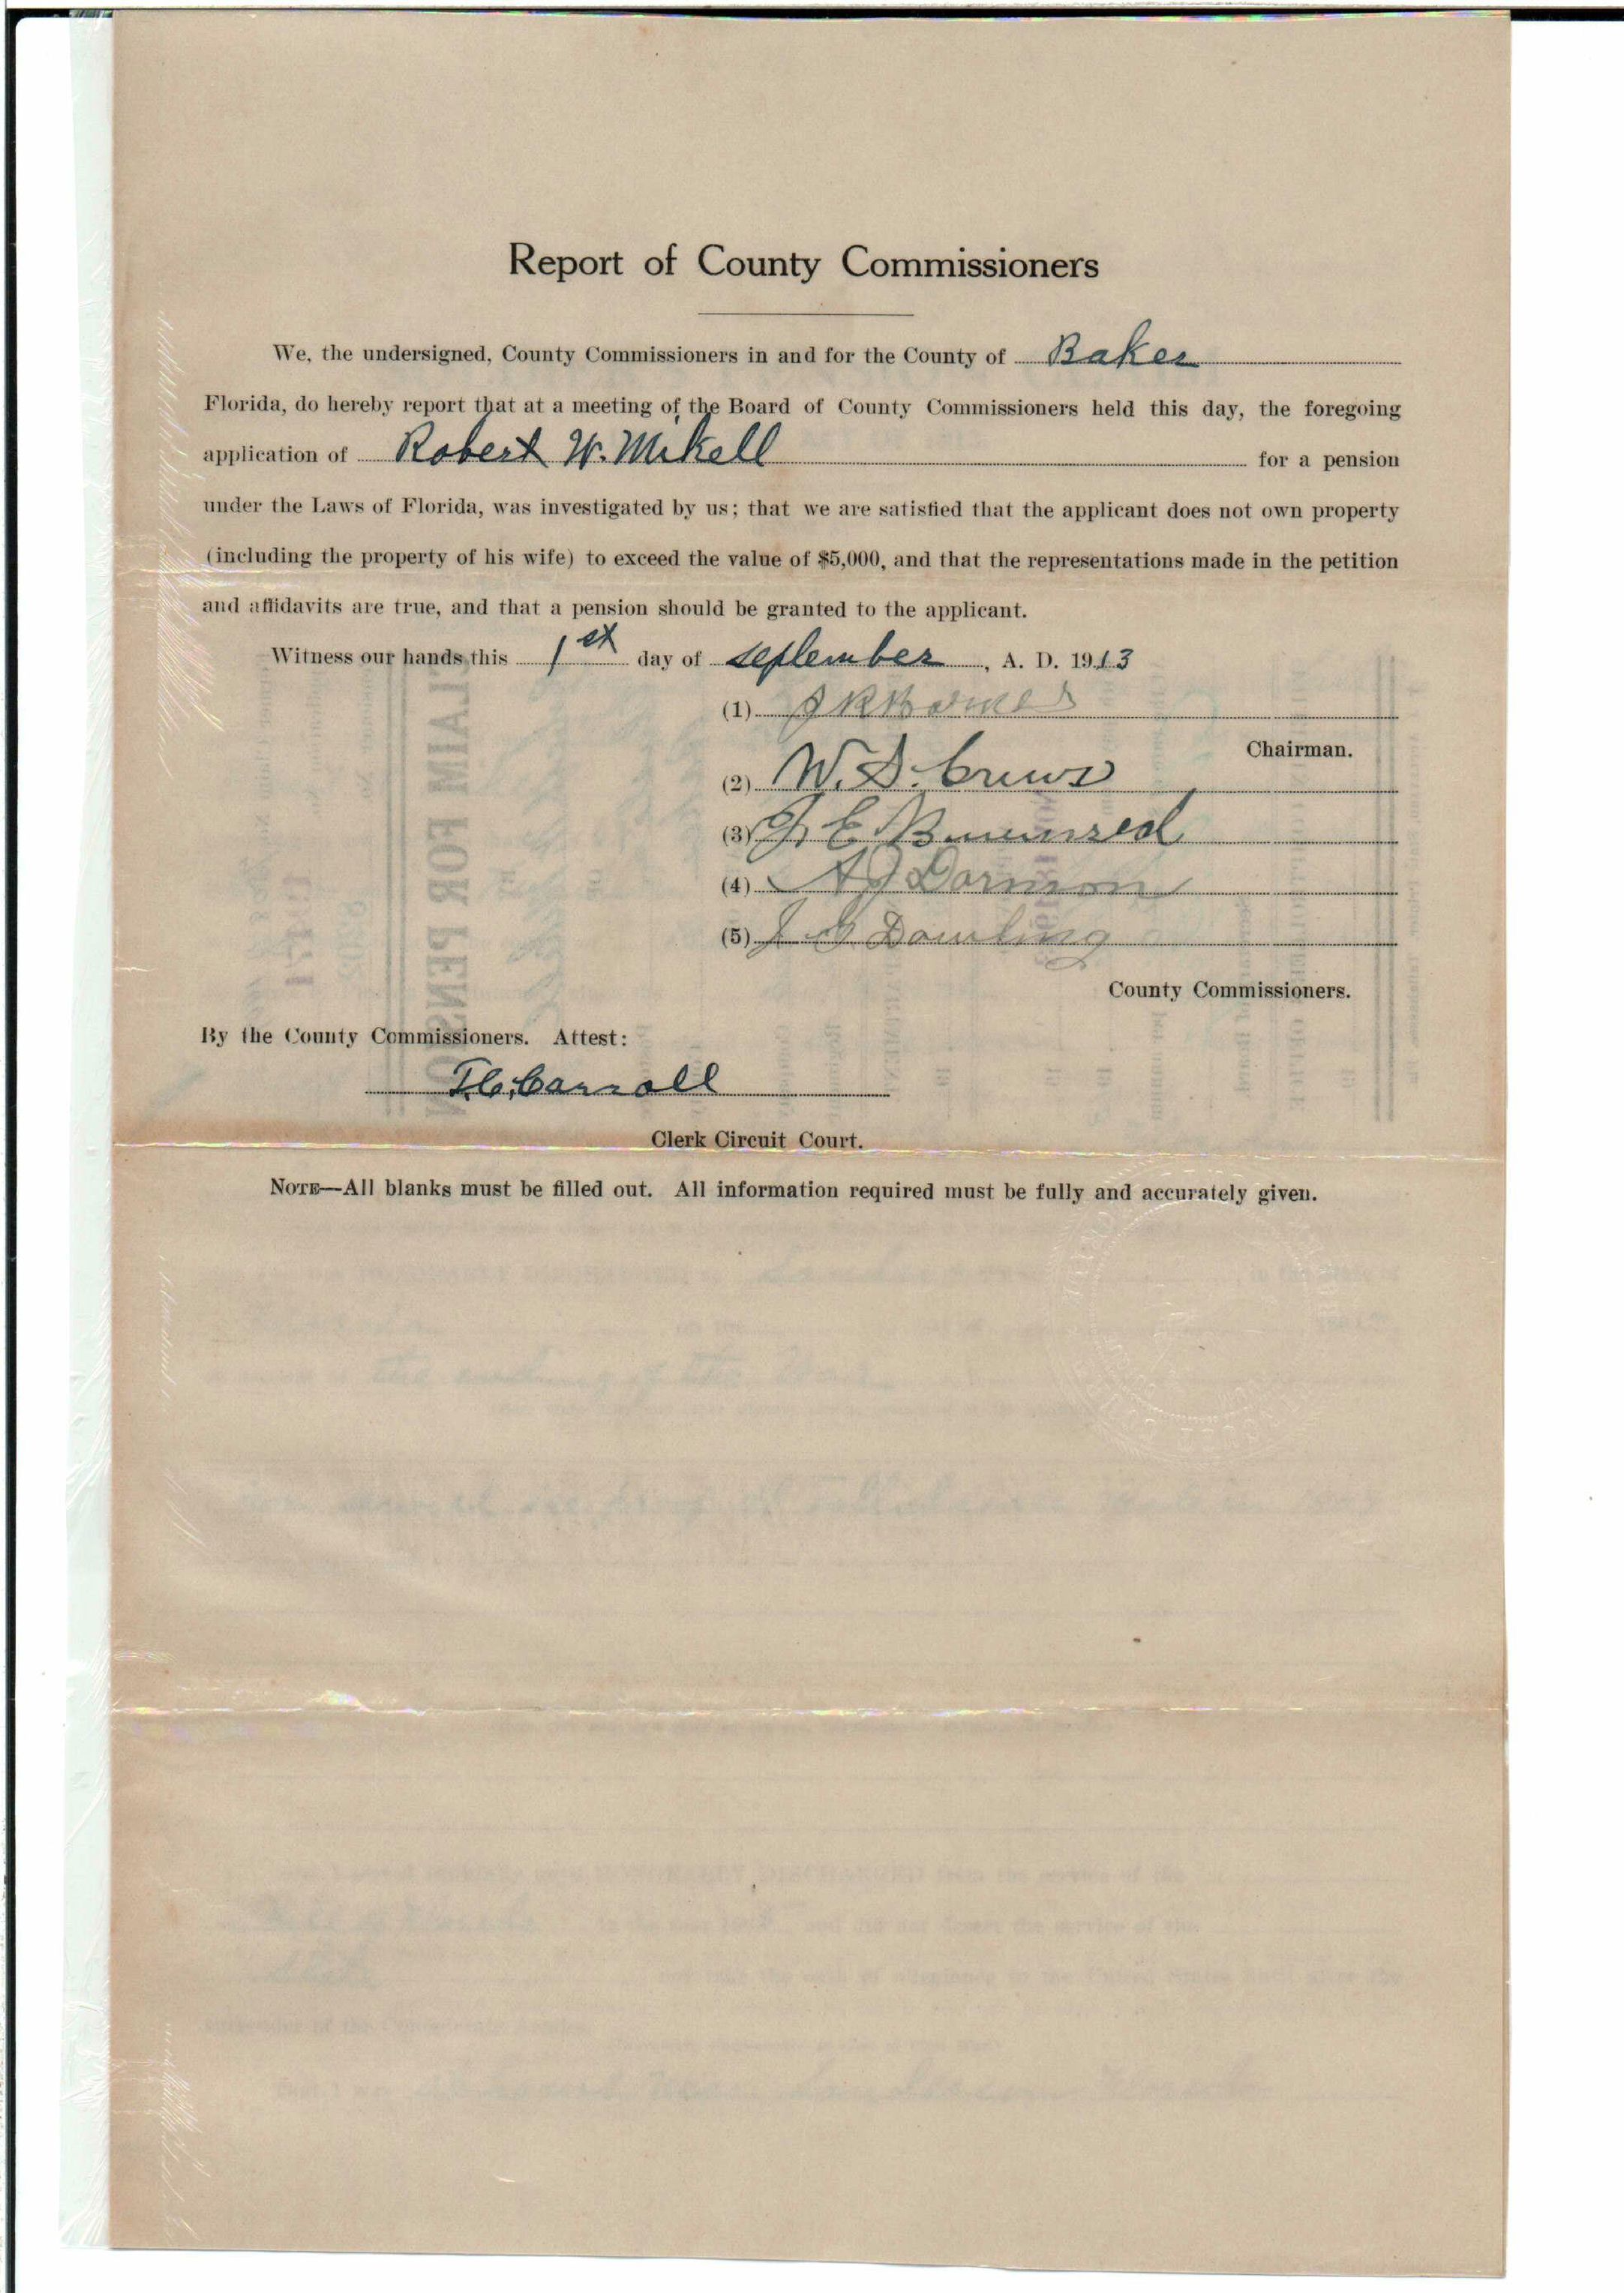 Report of County Commissioners
We, the undersigned, County Commissioners in and for the County of Baker
Florida, do hereby report that at a meeting of the Board of County Commissioners held this day, the foregoing
application of Robert W. Mikell for a pension
under the Laws of Florida, was investigated by us; that we are satisfied that the applicant does not own property
(including the property of his wife) to exceed the value of $5,000, and that the representations made in the petition
and affidavits are true, and that a pension should be granted to the applicant.
Witness our hands this 1st day of september, A. D. 1913
(1)
Chairman.
(2) W. D. Crews
(3) J. E.
(4) A J Dorman
(5) J G Dowling
County Commissioners.
By the County Commissioners. Attest:
Carroll
Clerk Circuit Court.
NOTE—All blanks must be filled out. All information required must be fully and accurately given.